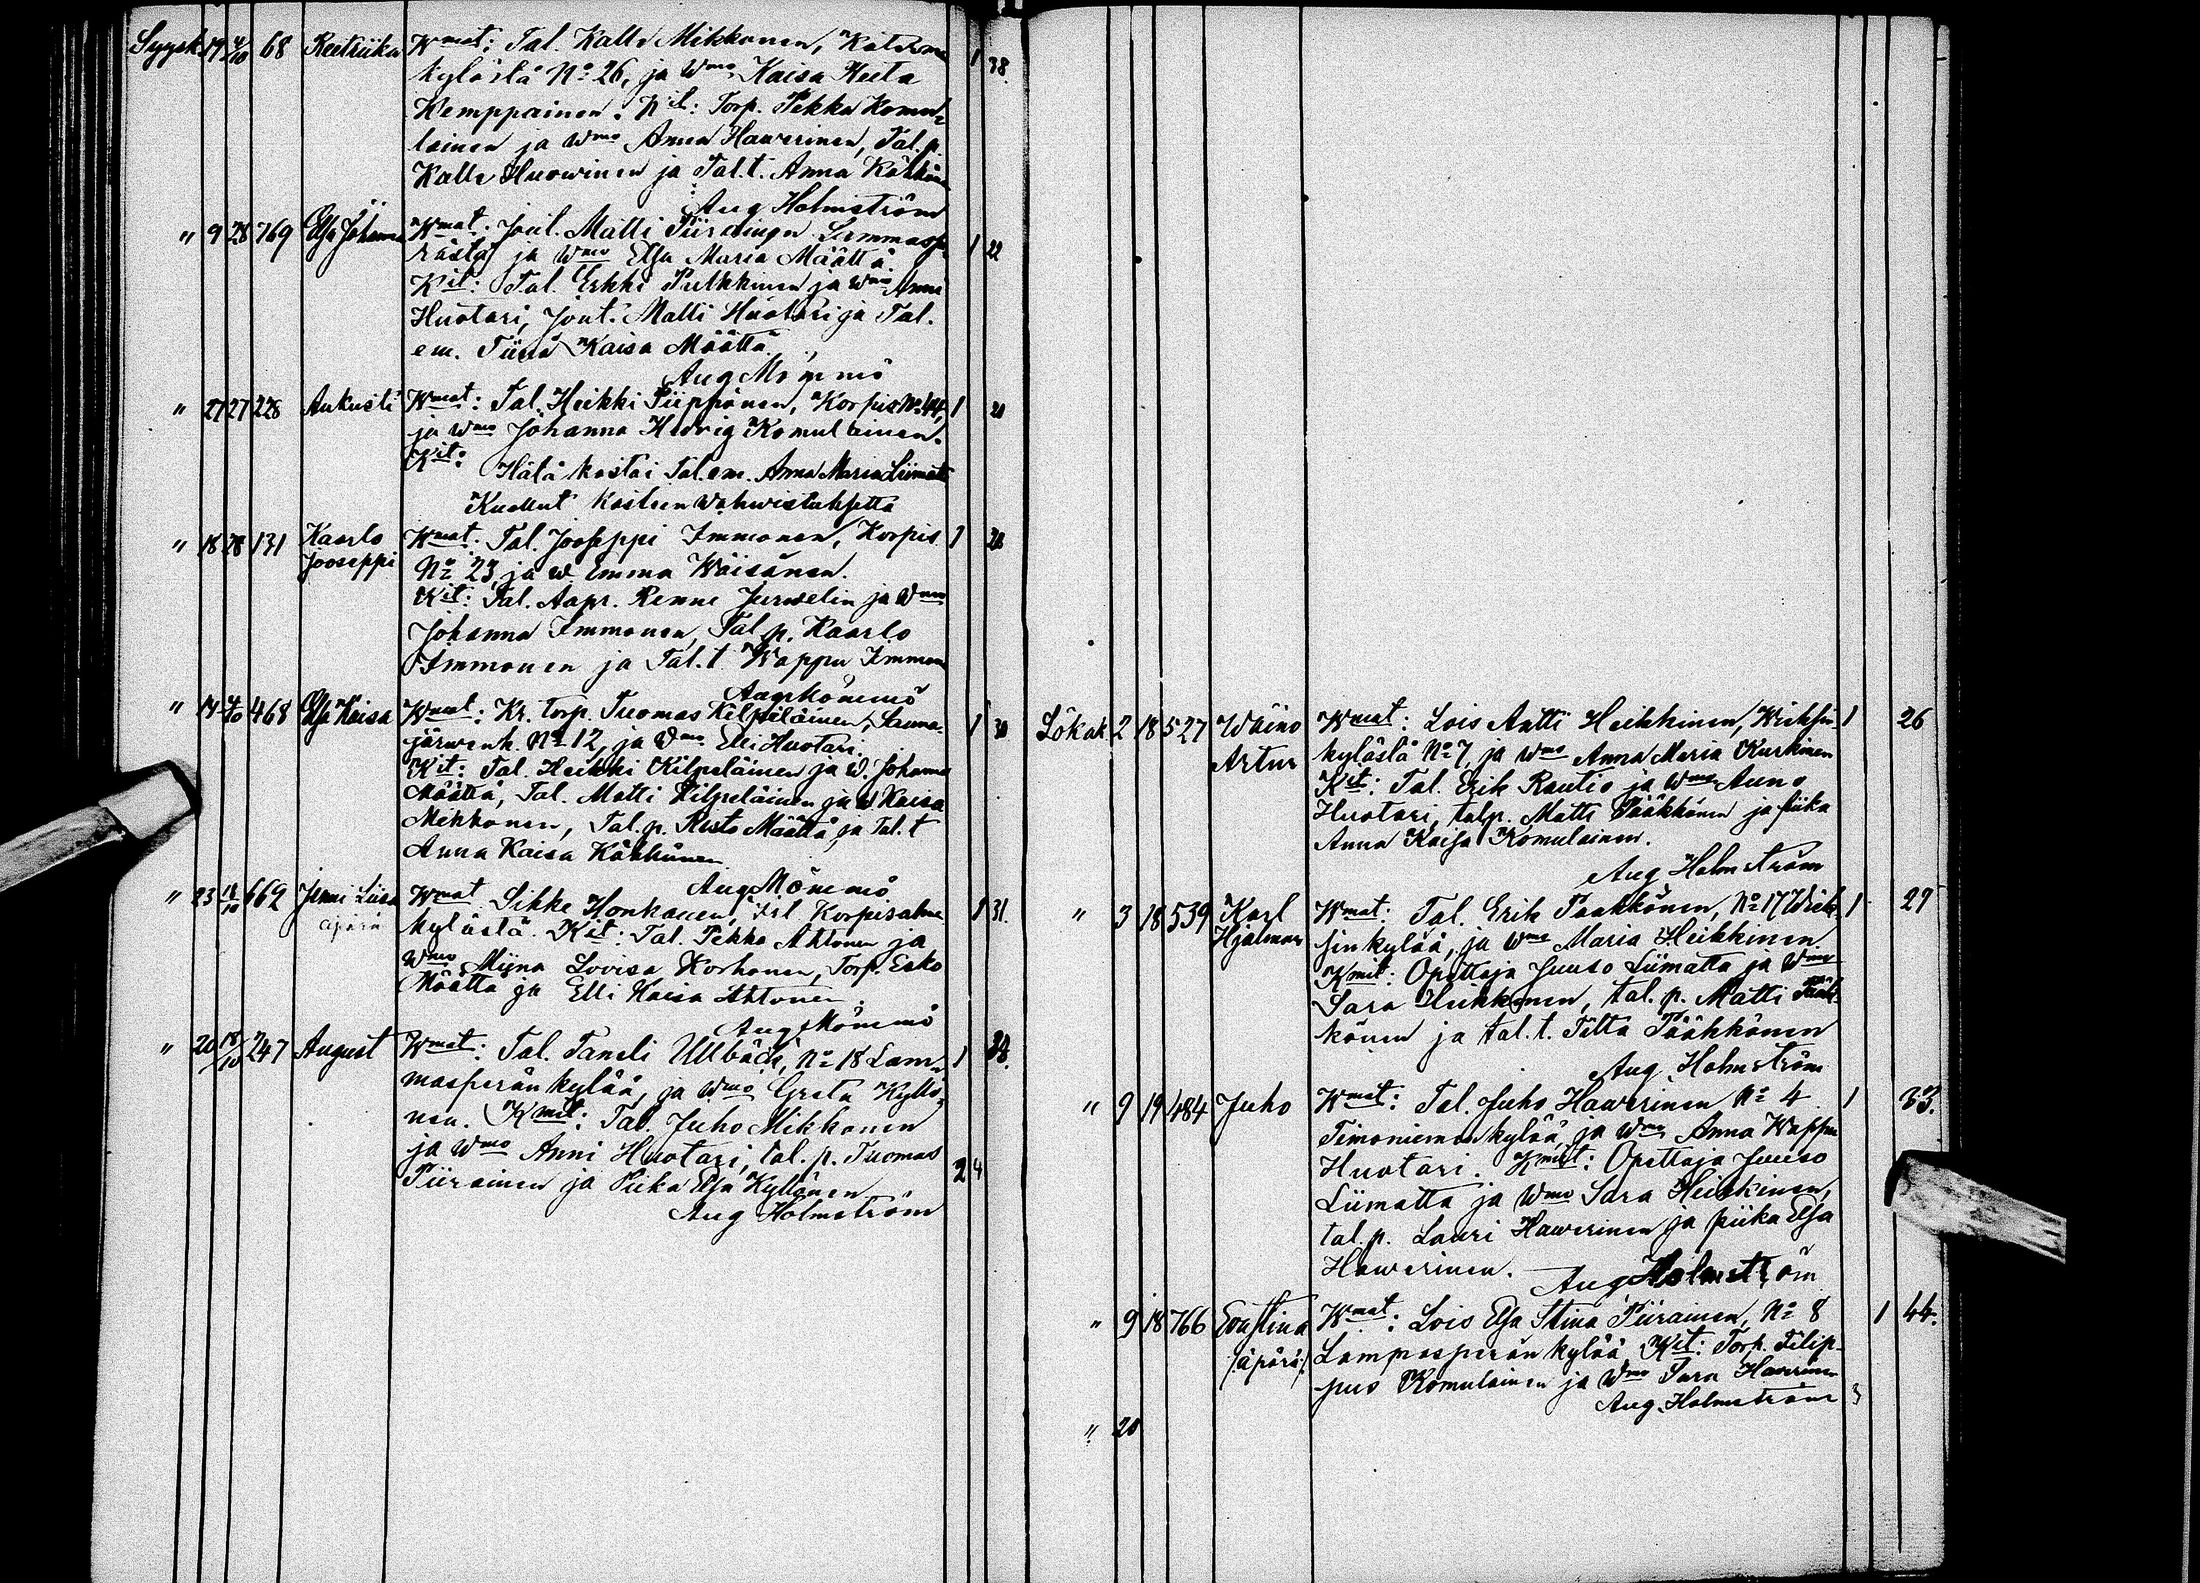 Syysk. 17 4/10 68 Reetriika Wmat: Tal. Kalle Mikkonen, Katerma 1 38.
kylästä No 26, ja Wmo Kaisa Reeta
Kemppainen. Kit: Torp. Pekka Komu-
lainen ja Wmo Anna Hawerinen, Tal. p.
Kalle Huowinen ja Tal. t. Anna
Aug Holmström
" 9 28 769 Elsa Johanna Wmat: Matti Piirainen Lammasp- 1 22
ja Wmo Elsa Maria Määttä.
Kit: Tal. Erkki Pulkkinen ja Wmo Anna
Huotari, Matti Huotari ja Tal.
em. Tiina Kaisa Määttä.
Aug Mömmö
" 27 27 228 Aukusti Wmat: Tal. Heikki Piipponen, Korpis No 44, 1
ja Wmo Johanna Hedvig Komulainen.
Kit: Hätä kastoi Tal. em. Anna Maria Liimatta
Kuollut kasteen wahwistuksetta
" 18 28 131 Kaarlo Jooseppi Wmat: Tal. Jooseppi Immonen, Korpis 1
No 23, ja w Emma Wäisänen.
Kit: Tal. Aapr. Renne Jurvelin ja Wmo
Johanna Immonen, Tal p. Kaarlo
Immonen ja Tal. t Wappu Immonen
Aug Mömmö
" 14 4/10 468 Elsa Kaisa Wmat: Kr. torp. Tuomas Kilpeläinen, Sauna- 1 30
järwenk. No 12, ja Wmo Elli Huotari.
Kit: Tal. Heikki Kilpeläinen ja W. Johanna
Määttä, Tal. Matti Kilpeläinen ja W Kaisa
Mikkonen, Tal. p. Risto Määttä, ja Tal. t
Anna Kaisa
Aug Mömmö
" 23 18/10 662 Jenni Liisa äpärä Wmat Sikke Honkanen, Korpisalmen 1 31.
kylästä. Kit: Tal. Pekka Ahtonen ja
Wmo Miina Lovisa Korhonen, Torp. Esko
Määttä ja Elli Kaisa Ahtonen.
Aug Mömmö
" 20 18/10 247 August Wmat: Tal. Taneli Ullbäck, No 18 Lam- 1
masperän kylää, ja Wmo Greta Kyllö-
nen. Kmit: Tal. Juho Mikkonen
ja Wmo Anni Huotari, tal. p. Tuomas
Piirainen ja Piika Elsa Kyllönen 2 4
Aug Holmström
Lokak 2 18 527 Wäinö Artur Wmat: Lois Antti Heikkinen, Wieksin- 1 26
kylästä No 7, ja Wmo Anna Maria Kurkinen
Kit: Tal. Erik Rautio ja Wmo Auno
Huotari, tal p. Matti Pääkkönen ja piika
Anna Kaisa Komulainen.
Aug Holmström
" 3 18 539 Karl Hjalmar Wmat: Tal. Erik Pääkkönen, No 17 Wiek- 1 29
sinkylää, ja Wmo Maria Heikkinen
Kmit: Opettaja Juuso Liimatta ja Wmo
Sara Heikkinen, tal. p. Matti Pääk-
könen ja tal. t. Pääkkönen
Aug Holmström
" 9 19 484 Juho Wmat: Tal. Juho Hawerinen No 4 1 33.
Timoniemen kylää, ja Wmo Anna Wappu
Huotari. Kmit: Opettaja Juuso
Liimatta ja Wmo Sara Heikkinen,
tal. p. Lauri Hawerinen ja piika Elsa
Hawerinen.
Aug Holmström
" 9 18 766 Eevstina (äpärä) Wmat: Lois Elsa Stina Piirainen, No 8 1 44.
Lammasperän kylää. Kit: Torp. Filip-
pus Komulainen ja Wmo Sara Hawerinen
Aug. Holmström
" 20